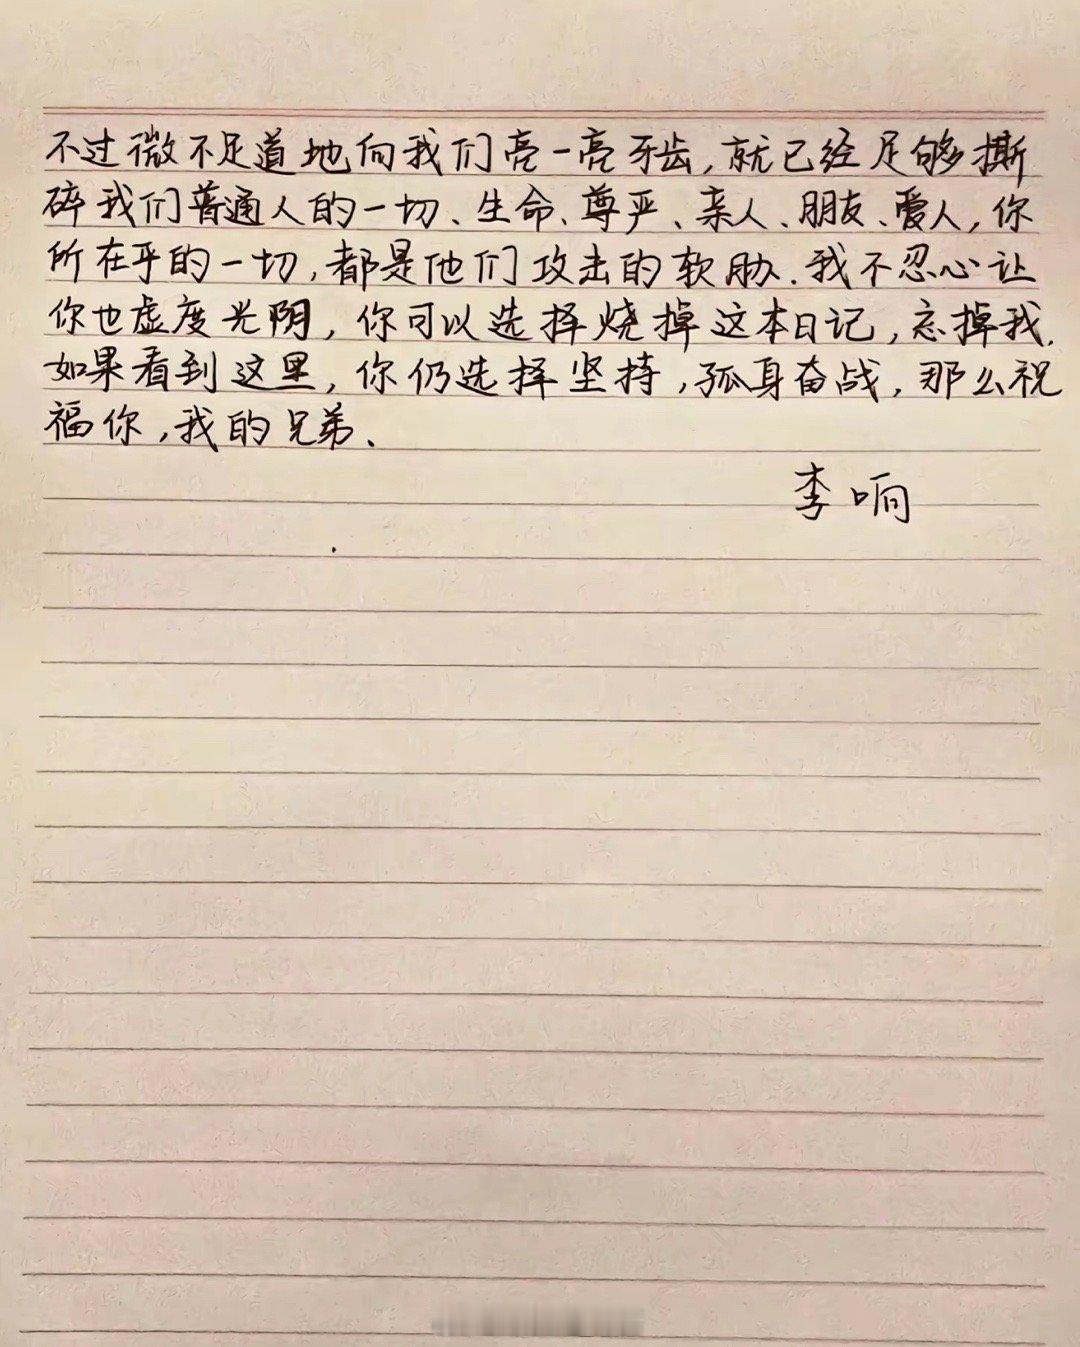 不过微不足道地向我们亮一亮牙齿,就已经足够撕
碎我们普通人的一切、生命、尊严、亲人、朋友、爱人,你
所在乎的一切,都是他们攻击的软肋.我不忍心让
你也虚度光阴,你可以选择烧掉这本日记,忘掉我.
如果看到这里,你仍选择坚持,孤身奋战,那么祝
福你,我的兄弟、
李响